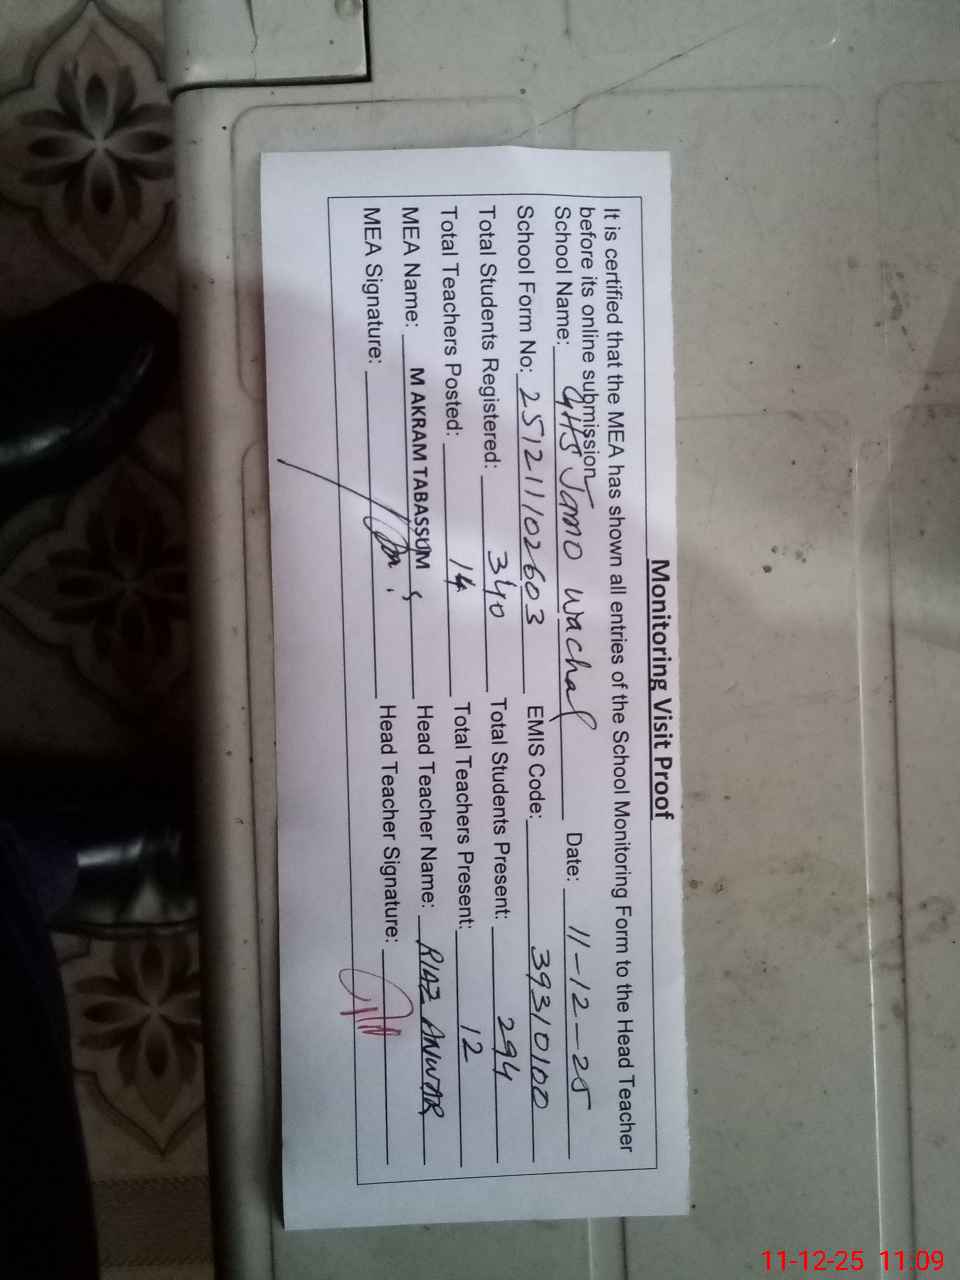 Monitoring Visit Proof
It is certified that the MEA has shown all entries of the School Monitoring Form to the Head Teacher
before its online submission
School Name: GHS Jamo Wachal Date: 11-12-25
School Form No: 251211102603 EMIS Code: 39310100
Total Students Registered: 340 Total Students Present: 294
Total Teachers Posted: 14 Total Teachers Present: 12
MEA Name: M AKRAM TABASSUM Head Teacher Name: RIAZ ANWAR
MEA Signature: Head Teacher Signature:
11-12-25 11:09